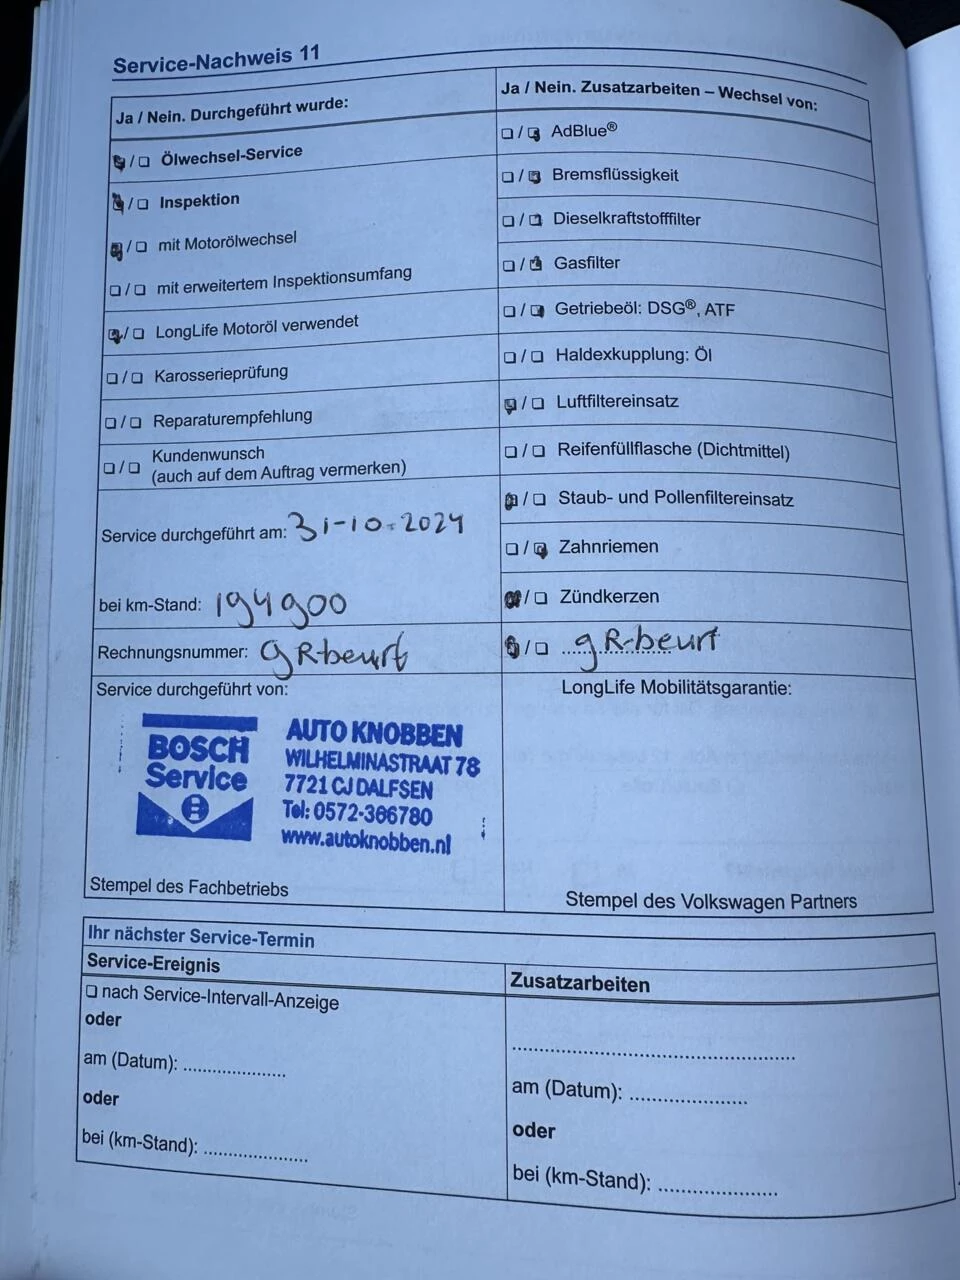 Service-Nachweis 11
Ja / Nein. Durchgeführt wurde:
❏ / ❏ Ölwechsel-Service
❏ / ❏ Inspektion
❏ / ❏ mit Motorölwechsel
❏ / ❏ mit erweitertem Inspektionsumfang
❏ / ❏ LongLife Motoröl verwendet
❏ / ❏ Karosserieprüfung
❏ / ❏ Reparaturempfehlung
❏ / ❏ Kundenwunsch
(auch auf dem Auftrag vermerken)
Service durchgeführt am: 31-10-2024
bei km-Stand: 194900
Rechnungsnummer: gR-beurt
Service durchgeführt von:
BOSCH
Service
AUTO KNOBBEN
WILHELMINASTRAAT 78
7721 CJ DALFSEN
Tel: 0572-366780
www.autoknobben.nl
Stempel des Fachbetriebs
Ja / Nein. Zusatzarbeiten – Wechsel von:
❏ / ❏ AdBlue®
❏ / ❏ Bremsflüssigkeit
❏ / ❏ Dieselkraftstofffilter
❏ / ❏ Gasfilter
❏ / ❏ Getriebeöl: DSG®, ATF
❏ / ❏ Haldexkupplung: Öl
❏ / ❏ Luftfiltereinsatz
❏ / ❏ Reifenfüllflasche (Dichtmittel)
❏ / ❏ Staub- und Pollenfiltereinsatz
❏ / ❏ Zahnriemen
❏ / ❏ Zündkerzen
❏ / ❏ gR-beurt
LongLife Mobilitätsgarantie:
Stempel des Volkswagen Partners
Ihr nächster Service-Termin
Service-Ereignis
❏ nach Service-Intervall-Anzeige
oder
am (Datum): ....................
oder
bei (km-Stand): ....................
Zusatzarbeiten
..................................................
am (Datum): ....................
oder
bei (km-Stand): ....................